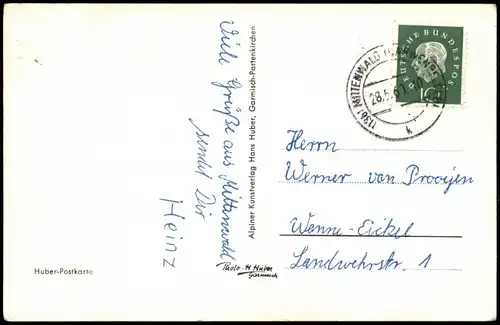 Viele Grüße aus Mittenwald
sendet Dir
Heinz
Huber-Postkarte
Photo-H. Huber
Garmisch
Alpiner Kunstverlag Hans Huber, Garmisch-Partenkirchen
DEUTSCHE BUNDESPOST
10
(13b) MITTENWALD
28.5.61
k
Herrn
Werner van Prooijen
Wanne-Eickel
Landwehrstr. 1